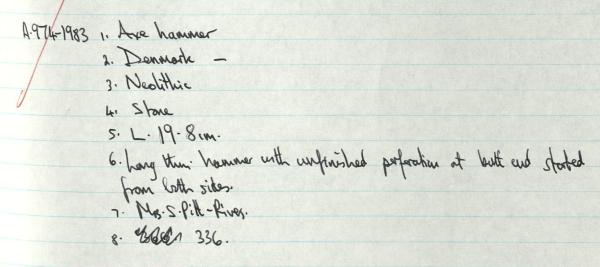 A.974-1983 1. Axe hammer
2. Denmark –
3. Neolithic
4. Stone
5. L. 19.8cm.
6. Long thin hammer with unfinished perforation at butt end started
from both sides.
7. Mrs. S. Pitt-Rivers.
8. 336.